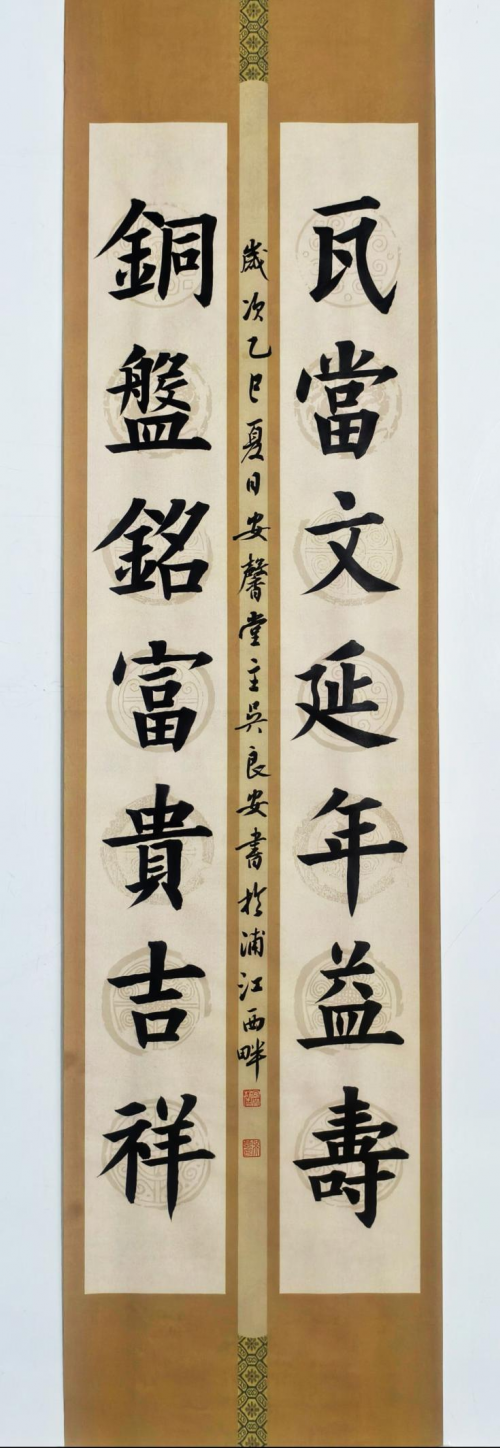 瓦當文延年益壽
銅盤銘富貴吉祥
歲次乙巳夏日安馨堂主吳良安書於浦江西畔